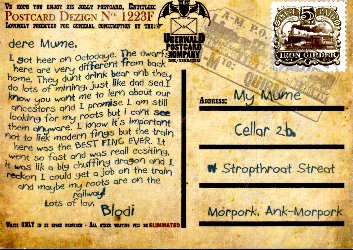 We hope you enjoy zis jolly postcard, Entitled:
Postcard Dezign No 1223F
Lovingly produced for general consumption by thirsty
Uberwald
Postcard
Company
5
dere Mume.
I got heer on Octodaye. The dwarfs
here are very different from back
home. They dunt drink bear anb they
do lots of mining just like dad sed. I
know you want me to lern about our
ancestors and I promise I am still
looking for my roots but I cant see
them anyware. I know its important
not to liek modern fings but the train
here was the BEST FING EVER. It
went so fast and was reall ecsiting.
it was lik a big chuffing dragon and I
reckon I could get a job on the train
and maybe my roots are on the
railway!
Lots of lov.
Blodi
Address:
My Mume
Cellar 2b,
Stropthroat Streat
Morpork, Ank-Morpork
Write ONLY in ze space provided - All other writing vill be ELIMINATED